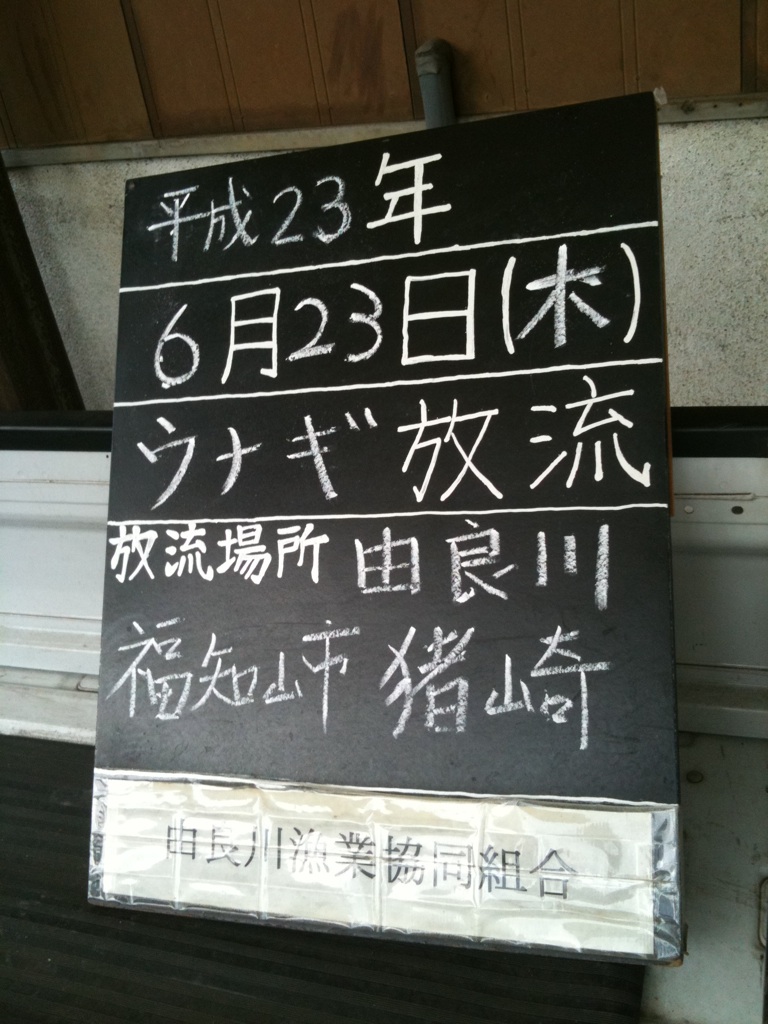 平成23年
6月23日(木)
ウナギ放流
放流場所 由良川
福知山市 猪崎
由良川漁業協同組合